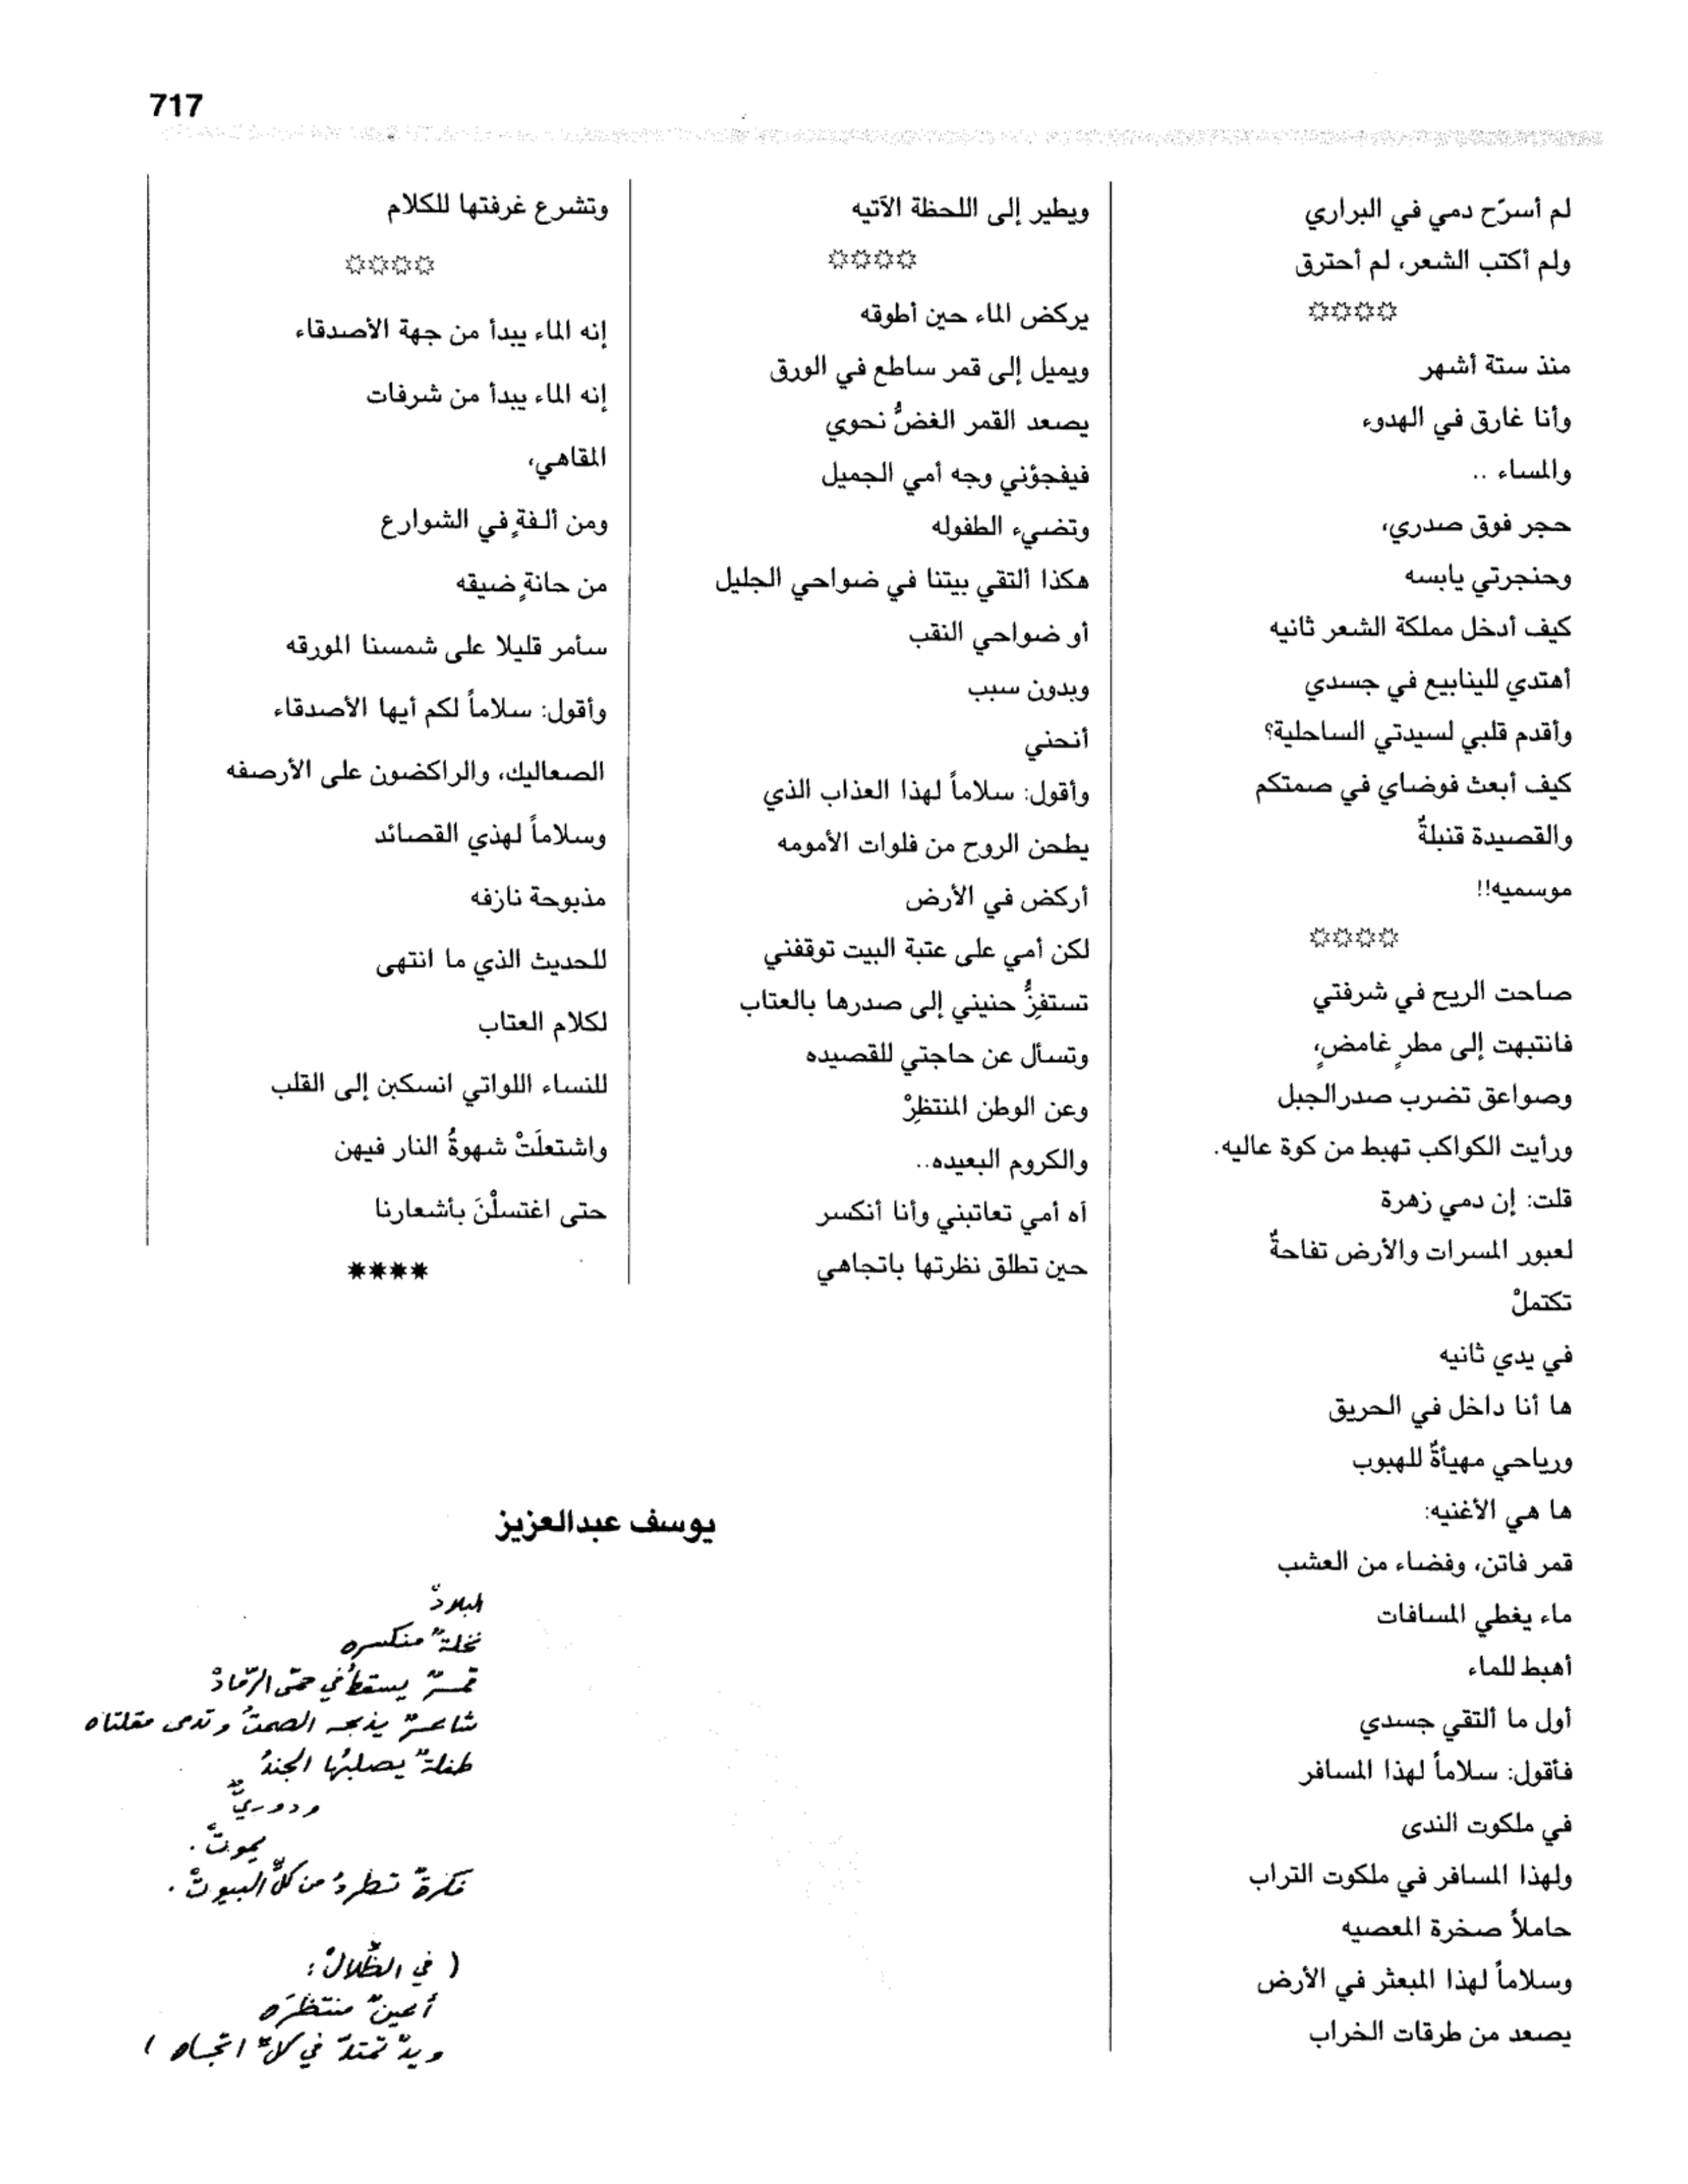 717
لم أسرّح دمي في البراري
ولم أكتب الشعر، لم أحترق
منذ ستة أشهر
وأنا غارق في الهدوء
والمساء ..
حجر فوق صدري،
وحنجرتي يابسه
كيف أدخل مملكة الشعر ثانيه
أهتدي للينابيع في جسدي
وأقدم قلبي لسيدتي الساحلية؟
كيف أبعث فوضاي في صمتكم
والقصيدة قنبلةٌ
موسميه!!
صاحت الريح في شرفتي
فانتبهت إلى مطرٍ غامضٍ،
وصواعق تضرب صدرالجبل
ورأيت الكواكب تهبط من كوة عاليه.
قلت: إن دمي زهرة
لعبور المسرات والأرض تفاحةٌ
تكتملْ
في يدي ثانيه
ها أنا داخل في الحريق
ورياحي مهيأةٌ للهبوب
ها هي الأغنيه:
قمر فاتن، وفضاء من العشب
ماء يغطي المسافات
أهبط للماء
أول ما ألتقي جسدي
فأقول: سلاماً لهذا المسافر
في ملكوت الندى
ولهذا المسافر في ملكوت التراب
حاملاً صخرة المعصيه
وسلاماً لهذا المبعثر في الأرض
يصعد من طرقات الخراب
ويطير إلى اللحظة الآتيه
يركض الماء حين أطوقه
ويميل إلى قمر ساطع في الورق
يصعد القمر الغضُّ نحوي
فيفجؤني وجه أمي الجميل
وتضيء الطفوله
هكذا ألتقي بيتنا في ضواحي الجليل
أو ضواحي النقب
وبدون سبب
أنحني
وأقول: سلاماً لهذا العذاب الذي
يطحن الروح من فلوات الأمومه
أركض في الأرض
لكن أمي على عتبة البيت توقفني
تستفزُّ حنيني إلى صدرها بالعتاب
وتسأل عن حاجتي للقصيده
وعن الوطن المنتظِرْ
والكروم البعيده..
آه أمي تعاتبني وأنا أنكسر
حين تطلق نظرتها باتجاهي
وتشرع غرفتها للكلام
إنه الماء يبدأ من جهة الأصدقاء
إنه الماء يبدأ من شرفات
المقاهي،
ومن ألفةٍ في الشوارع
من حانةٍ ضيقه
سأمر قليلا على شمسنا المورقه
وأقول: سلاماً لكم أيها الأصدقاء
الصعاليك، والراكضون على الأرصفه
وسلاماً لهذي القصائد
مذبوحة نازفه
للحديث الذي ما انتهى
لكلام العتاب
للنساء اللواتي انسكبن إلى القلب
واشتعلَتْ شهوةُ النار فيهن
حتى اغتسلْنَ بأشعارنا
****
يوسف عبدالعزيز
البلادْ
نخلةٌ منكسره
قمرٌ يسقطُ في حمّى الرّمادْ
شاعرٌ يذبحه الصمتُ وتدمى مقلتاه
طفلةٌ يصلبُها الجندُ
ودوريٌّ
يموتْ.
فكرةٌ تطردُ من كلِّ البيوتْ.
( في الظّلالْ:
أعينٌ منتظرَه
ويدٌ تمتدّ في كلّ اتجاه )